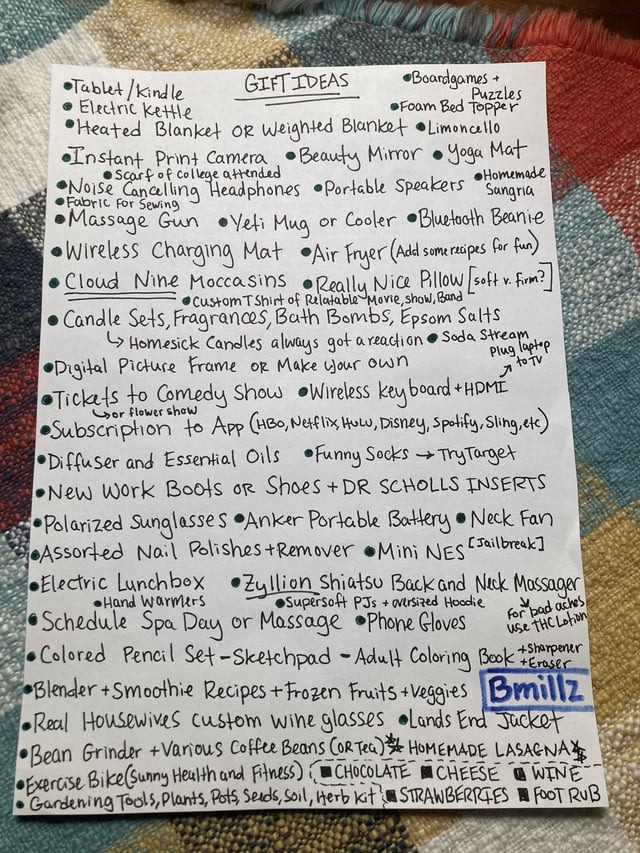 GIFT IDEAS
•Tablet/Kindle •Boardgames + Puzzles
•Electric Kettle •Foam Bed Topper
•Heated Blanket OR Weighted Blanket •Limoncello
•Instant Print Camera •Beauty Mirror •Yoga Mat
•Scarf of college attended •Homemade Sangria
•Noise Cancelling Headphones •Portable Speakers
•Fabric For Sewing
•Massage Gun •Yeti Mug or Cooler •Bluetooth Beanie
•Wireless Charging Mat •Air Fryer (Add some recipes for fun)
•Cloud Nine Moccasins •Really Nice Pillow [soft v. firm?]
•Custom T Shirt of Relatable Movie, show, Band
•Candle Sets, Fragrances, Bath Bombs, Epsom Salts
↳ Homesick Candles always got a reaction •Soda Stream
•Digital Picture Frame or Make your own
•Tickets to Comedy Show •Wireless keyboard + HDMI ↗ Plug laptop to TV
↳or flower show
•Subscription to App (HBO, Netflix, Hulu, Disney, Spotify, Sling, etc)
•Diffuser and Essential Oils •Funny Socks → Try Target
•New Work Boots OR Shoes + DR SCHOLLS INSERTS
•Polarized Sunglasses •Anker Portable Battery •Neck Fan
•Assorted Nail Polishes + Remover •Mini NES [Jailbreak]
•Electric Lunchbox •Zyllion Shiatsu Back and Neck Massager
•Hand Warmers •Supersoft PJs + oversized Hoodie For bad aches use THC Lotion
•Schedule Spa Day or Massage •Phone Gloves
•Colored Pencil Set - Sketchpad - Adult Coloring Book +Sharpener +Eraser
•Blender + Smoothie Recipes + Frozen Fruits + Veggies Bmillz
•Real Housewives custom wine glasses •Lands End Jacket
•Bean Grinder + Various Coffee Beans (OR Tea) HOMEMADE LASAGNA
•Exercise Bike (Sunny Health and Fitness) ■CHOCOLATE ■CHEESE ■WINE
•Gardening Tools, Plants, Pots, Seeds, Soil, Herb Kit ■STRAWBERRIES ■FOOT RUB